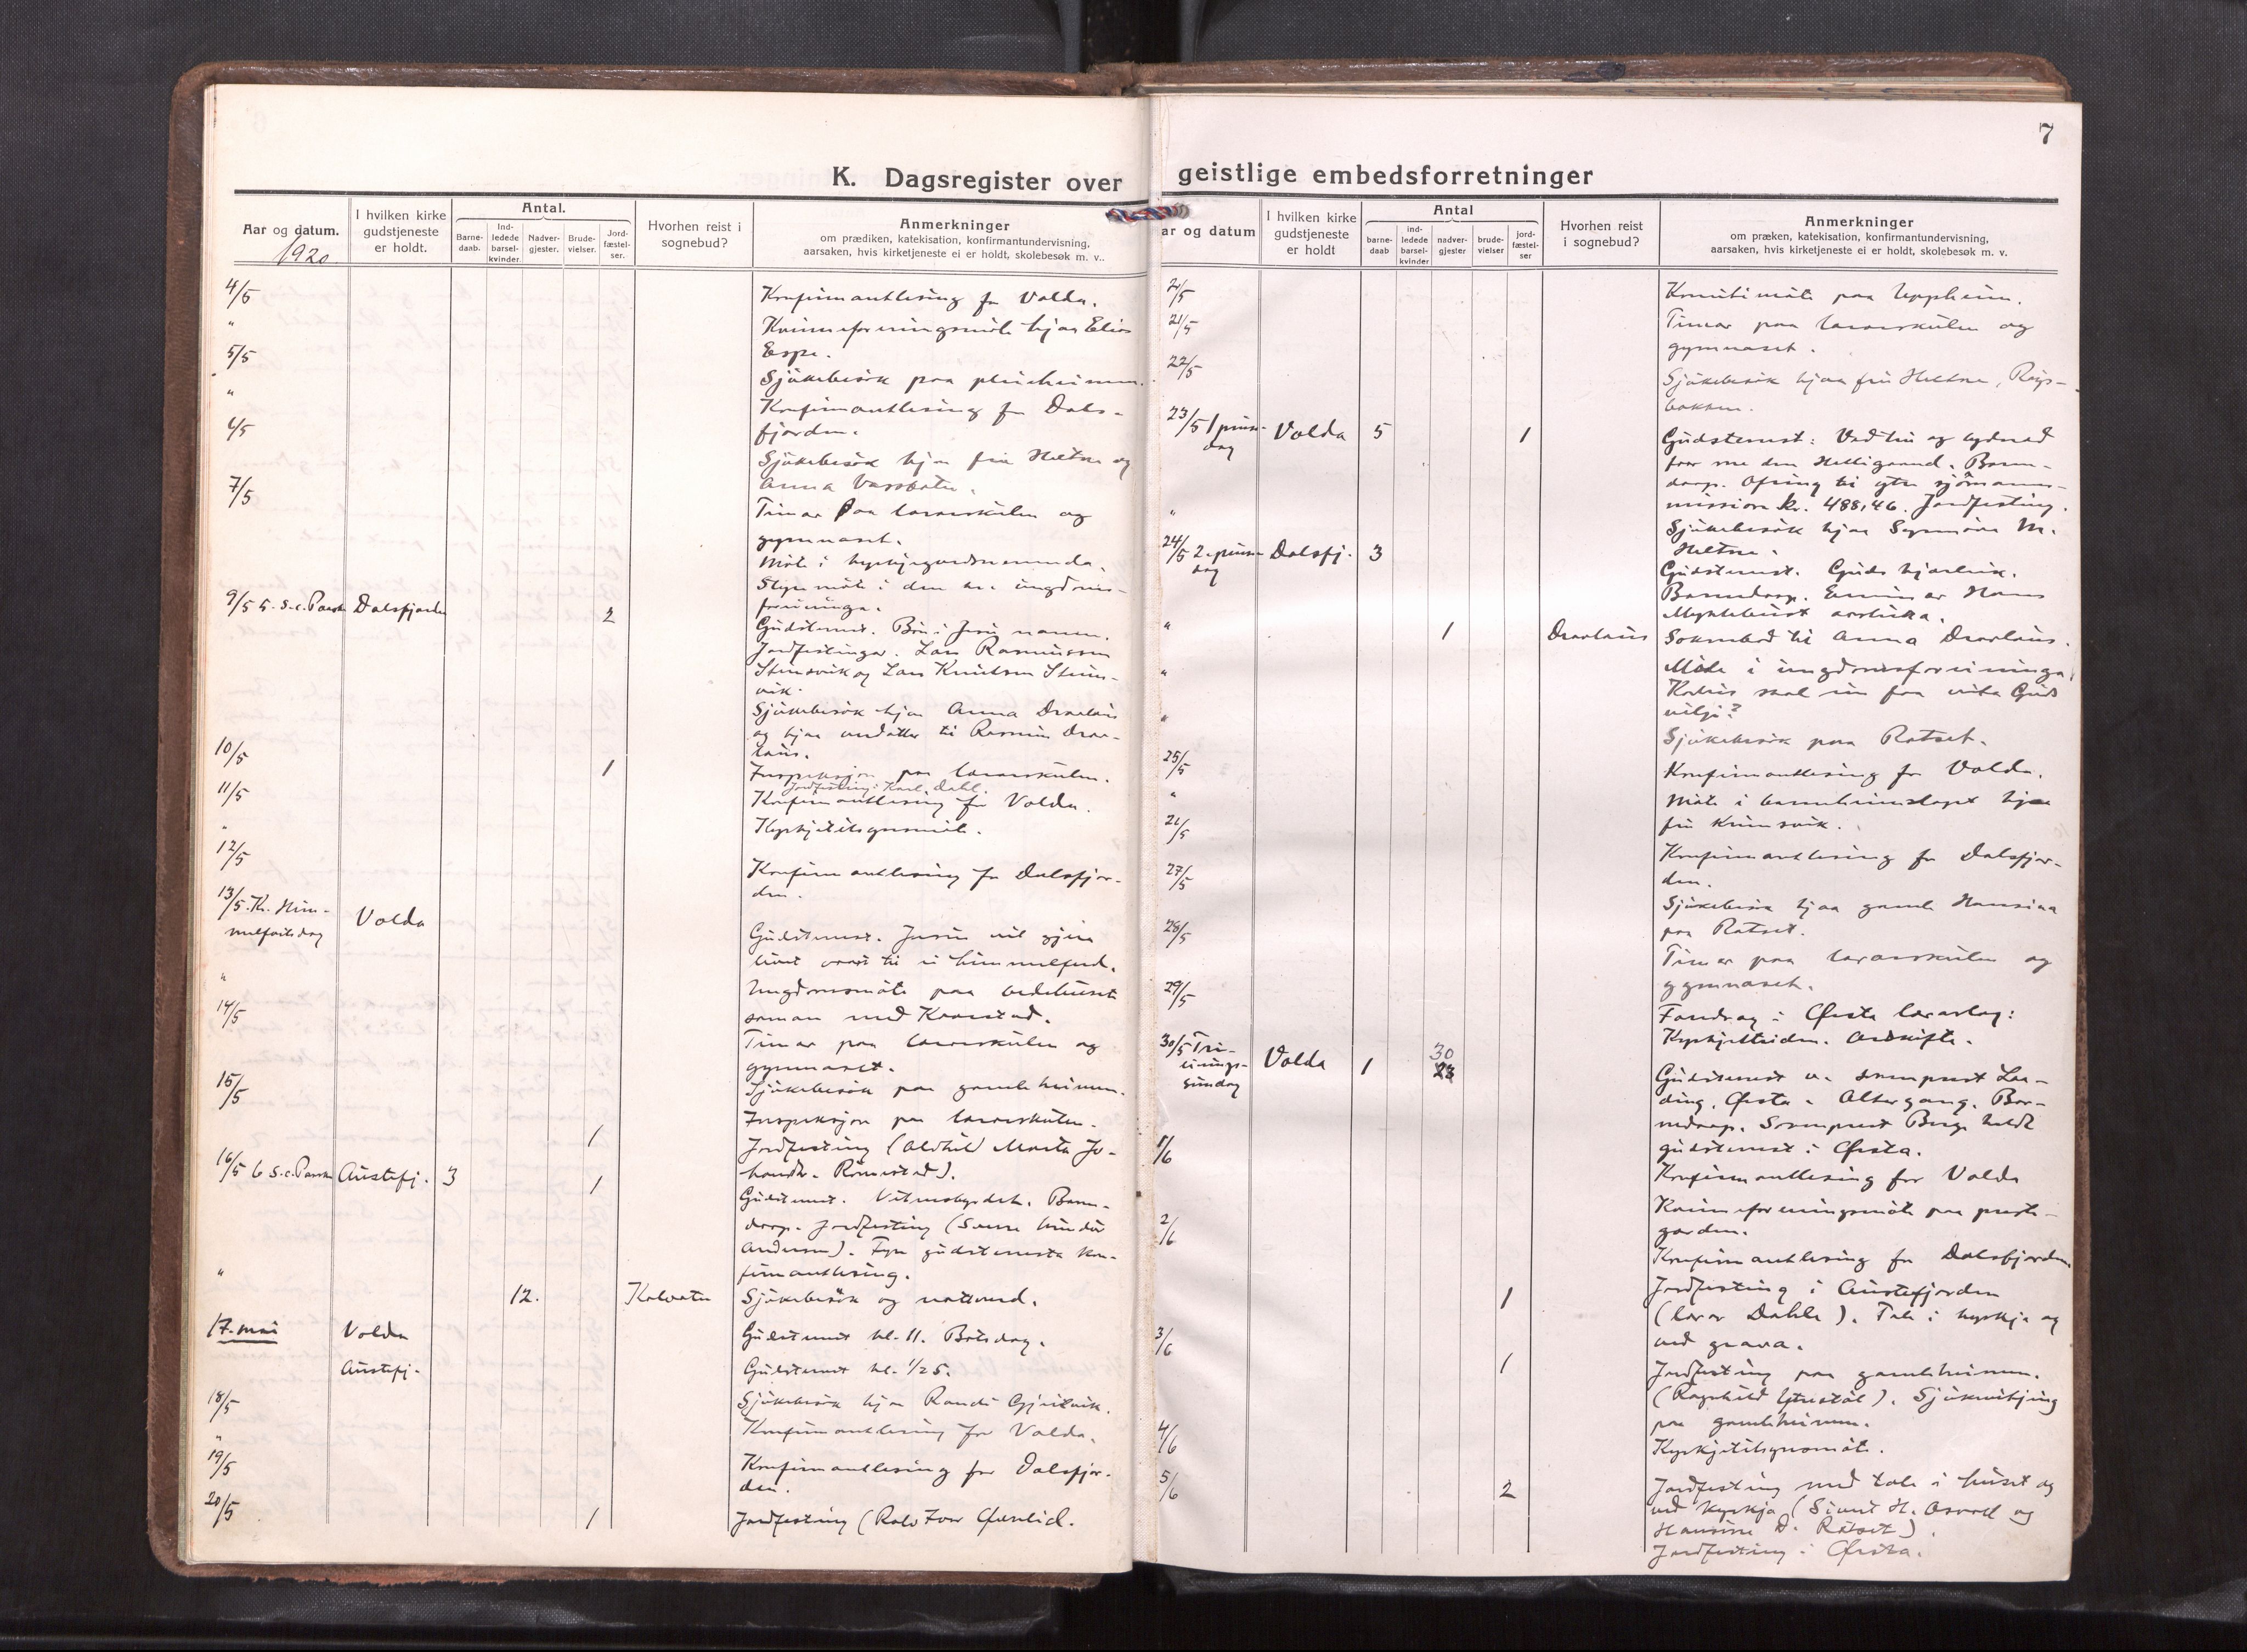 7
K. Dagsregister over geistlige embedsforretninger
Aar og datum.
1920
I hvilken kirke gudstjeneste er holdt.
Antal.
Barne-daab.
Ind-ledede barsel-kvinder.
Nadver-gjester.
Brude-vielser.
Jord-fæstel-ser.
Hvorhen reist i sognebud?
Anmerkninger
om prædiken, katekisation, konfirmantundervisning,
aarsaken, hvis kirketjeneste ei er holdt, skolebesøk m. v..
4/5 Konfirmantlesing for Volda.
" Kvinneforeningsmöte hjaa Elias
5/5 Espe.
Sjukebesök paa pleieheimen.
" Konfirmantlesing for Dals-
6/5 fjorden.
Sjukebesök hjaa fru Heltne og
Anna Vassbotn.
7/5 Timar paa lærarskulen og
gymnaset.
Möte i kyrkjegardsnemnda.
Styremöte i den kr. ungdoms-
foreninga.
9/5 5. S. e. Paaske Dalsfjorden 2
Gudstenest. Bön i Jesu namn.
Jordfestingar. Lars Rasmussen
Steinsvik og Lars Knutsen Steins-
vik.
Sjukebesök hjaa Anna Dravlaus
og hjaa
til Rasmus Drav-
laus.
10/5 1 Inspeksjon paa lærarskulen.
Jordfesting: Karl Dahl.
11/5 Konfirmantlesing for Volda.
" Kyrkjetilsynsmöte.
12/5 Konfirmantlesing for Dalsfjor-
den.
13/5. Kr. Him-
melfartsdag Volda
Gudstenest. Jesus vil gjera
livet vaart til ei himmelferd.
" Ungdomsmöte paa bedehuset
saman med Kaarstad.
14/5 Timar paa lærarskulen og
gymnaset.
15/5 Sjukebesök paa gamleheimen.
Inspeksjon paa lærarskulen.
1 Jordfesting (Oldhild Marta Jo-
handtr. Römestad).
16/5 6 S. e. Paaske Austefj. 3 1
Gudstenest. Vitnesbyrdet. Barn-
daap. Jordfesting (
Andersen). Fyre gudstenesta kon-
firmantlesing.
" 12. Kalvatn Sjukebesök og nattverd.
17. mai Volda Gudstenest kl. 11. Botsdag.
Austefj. Gudstenest kl. 1/2 5.
18/5 Sjukebesök hjaa Randi Gjeitvik.
" Konfirmantlesing for Volda.
19/5 Konfirmantlesing for Dalsfjor-
den.
20/5 1 Jordfesting (
ar og datum
I hvilken kirke gudstjeneste er holdt
Antal
barne-daab
ind-ledede barsel-kvinder
nadver-gjester
brude-vielser
jord-fæstel-ser
Hvorhen reist i sognebud?
Anmerkninger
om præken, katekisation, konfirmantundervisning,
aarsaken, hvis kirketjeneste ei er holdt, skolebesøk m. v.
21/5 möte paa Uppheim.
21/5 Timar paa lærarskulen og
gymnaset.
22/5 Sjukebesök hjaa fru Heltne, Röys-
bakken.
23/5 1 pinse-
dag Volda 5 1
Gudstenest: Ved tru og lydnad
faar me den Helligaand. Barn-
daap. Ofring til ytre sjömanns-
missions kr. 488,46. Jordfesting.
" Sjukebesök hjaa Synnöve M.
Heltne.
24/5 2. pinse-
dag Dalsfj. 3
Gudstenest. Guds kjærleik.
Barnedaap. Hans
Myklebust
" 1 Dravlaus Soknebod til Anna Dravlaus.
" Möte i ungdomsforeninga.
Korleis skal ein faa vita Guds
vilje?
" Sjukebesök paa Rotset.
25/5 Konfirmantlesing for Volda.
" Möte i barneheimslaget hjaa
fru
26/5 Konfirmantlesing for Dalsfjor-
den.
27/5 Sjukebesök hjaa gamle Hansina
paa Rotset.
28/5 Timar paa lærarskulen og
gymnaset.
29/5 Foredrag i Örsta lærarlag:
Kyrkjestriden. Ordskifte.
30/5 Tri-
einings-
sundag Volda 1 30 23
Gudstenest v. sokneprest Laa-
ding, Örsta. Altergang. Bar-
nedaap. Sokneprest Berge heldt
gudstenest i Örsta.
1/6 Konfirmantlesing for Volda
Kvinneforeningsmöte paa preste-
garden.
2/6 Konfirmantlesing for Dalsfjorden.
1 Jordfesting i Austefjorden
(lærar Dahle). Tale i kyrkja og
ved grava.
3/6 1 Jordfesting paa gamleheimen.
(Ragnhild Ytrestöl). Sjukevitjing
paa gamleheimen.
4/6 Kyrkjetilsynsmöte.
5/6 2 Jordfesting med tale i huset og
ved kyrkja (Sivert H. Aasvoll og
Hansine D. Rotset).
Jordfesting i Örsta.